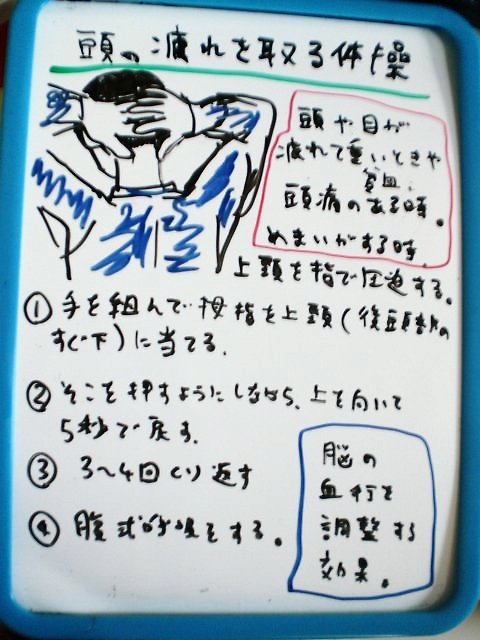 頭の疲れを取る体操
頭や目が
疲れて重いときや
貧血、
頭痛のある時。
めまいがする時。
上頸を指で圧迫する。
① 手を組んで拇指を上頸(後頭部の
すぐ下)に当てる.
② そこを押すようにしながら、上を向いて
5秒で戻す.
③ 3〜4回くり返す
④ 腹式呼吸をする。
脳の
血行を
調整する
効果。